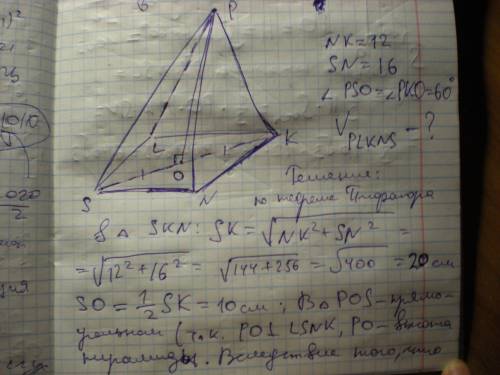 P
NK=12
SN=16
∠PSO=∠PKO=60°
V PLKNS - ?
L
K
O
S
N
Решение:
по теореме Пифагора
В △ SKN: SK=√NK²+SN² =
=√12²+16² = √144+256 = √400 = 20 см
SO = 1/2 SK = 10 см; В △ POS - прямо-
угольном (т.к. PO⊥LSNK, PO - высота
пирамиды. Вследствие того, что